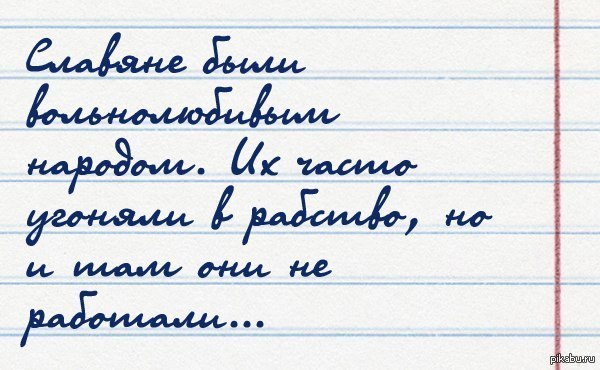 Славяне были
вольнолюбивым
народом. Их часто
угоняли в рабство, но
и там они не
работали...
pikabu.ru